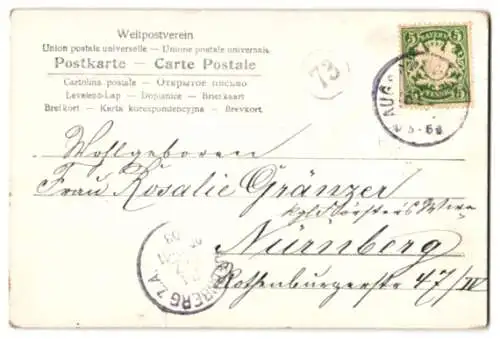 Weltpostverein
Union postale universelle — Unione postale universale
Postkarte — Carte Postale
Cartolina postale — Открытое письмо
Levelező-Lap — Dopisnice — Briefkaart
Brefkort — Karta korespondencyjna — Brevkort
73
5 BAYERN 5
AUGS
5-6
Wohlgeboren
Frau Rosalie Gränzer
kgl. Försters
Nürnberg
Rothenburgerstr 47/IV
NUERNBERG Z.A.